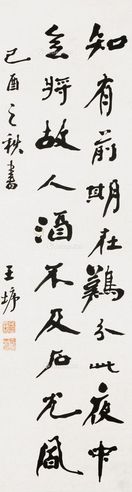 知有前期在難分此夜中
無將故人酒不及石尤風
己酉之秋書
王